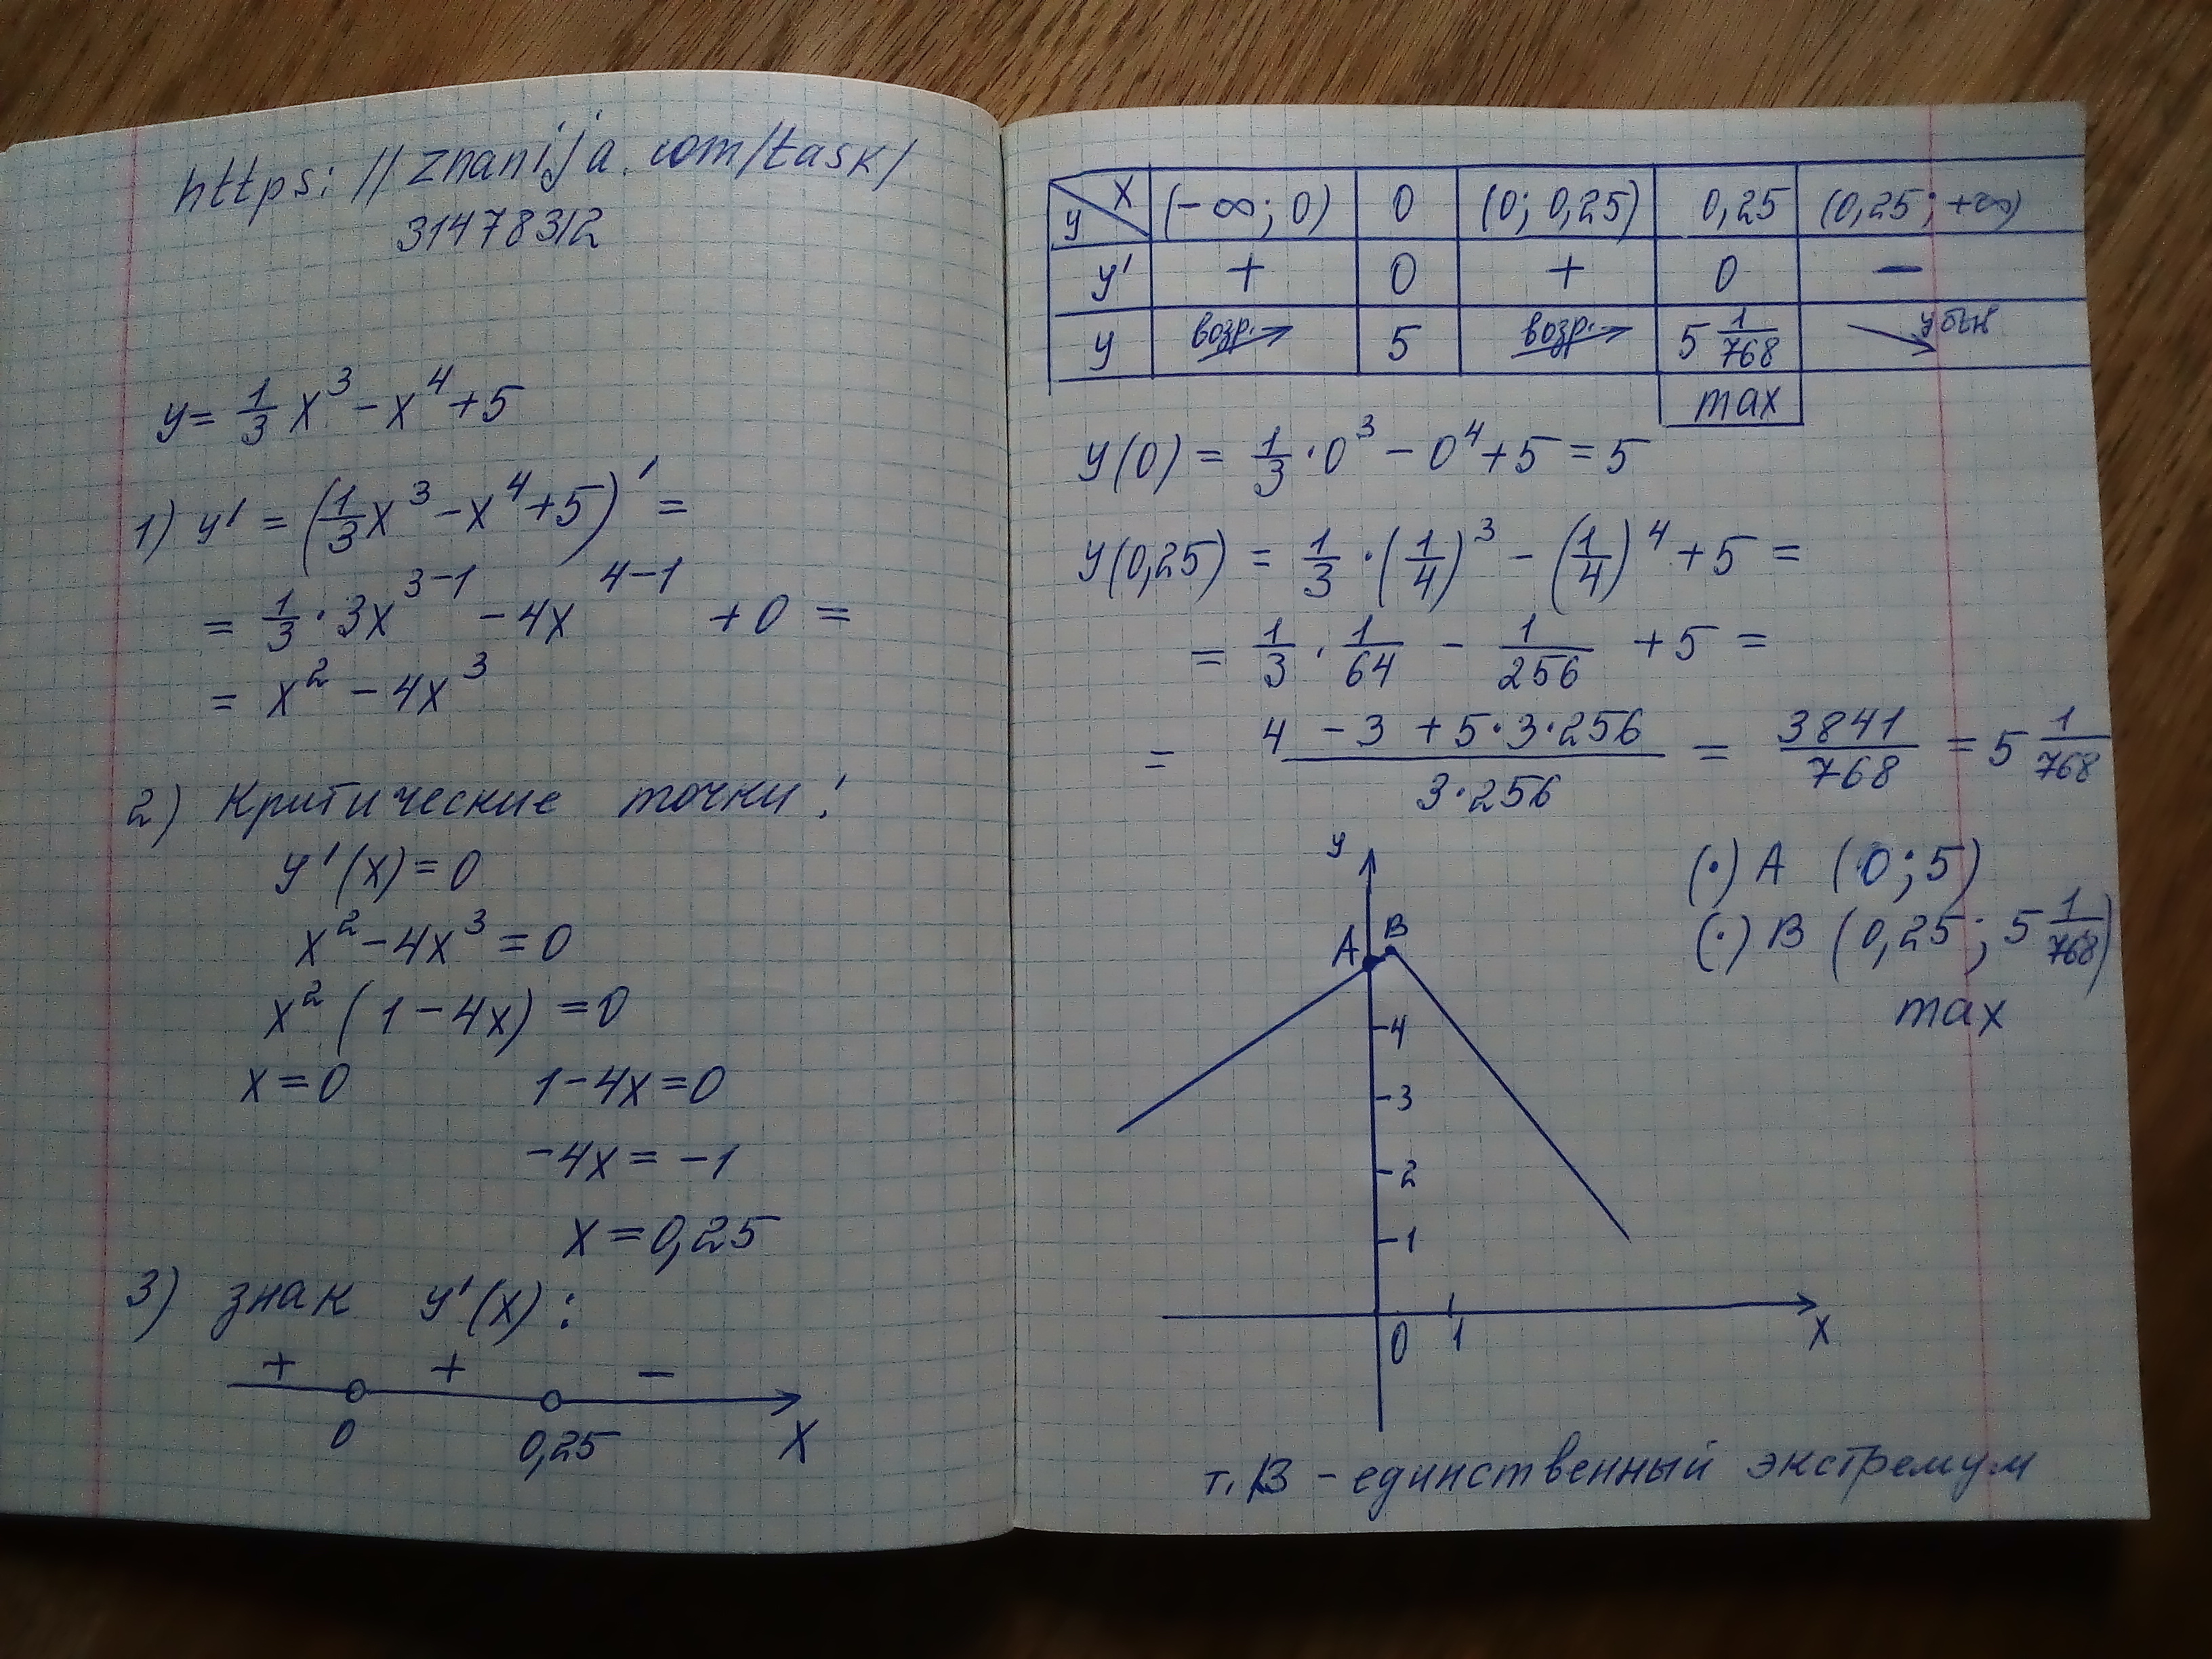 https://znanija.com/task/
31478312
y = 1/3 x³ − x⁴ + 5
1) y' = (1/3 x³ − x⁴ + 5)' =
= 1/3 · 3x³⁻¹ − 4x⁴⁻¹ + 0 =
= x² − 4x³
2) Критические точки:
y'(x) = 0
x² − 4x³ = 0
x² (1 − 4x) = 0
x = 0 1 − 4x = 0
−4x = −1
x = 0,25
3) знак y'(x):
+ + −
0 0,25 X
y x (−∞; 0) 0 (0; 0,25) 0,25 (0,25; +∞)
y' + 0 + 0 −
y возр. 5 возр. 5 1/768 убыв
max
y(0) = 1/3 · 0³ − 0⁴ + 5 = 5
y(0,25) = 1/3 · (1/4)³ − (1/4)⁴ + 5 =
= 1/3 · 1/64 − 1/256 + 5 =
= (4 − 3 + 5·3·256)/(3·256) = 3841/768 = 5 1/768
(·) A (0; 5)
(·) B (0,25; 5 1/768)
max
y
A B
4
3
2
1
0 1 X
т. B − единственный экстремум